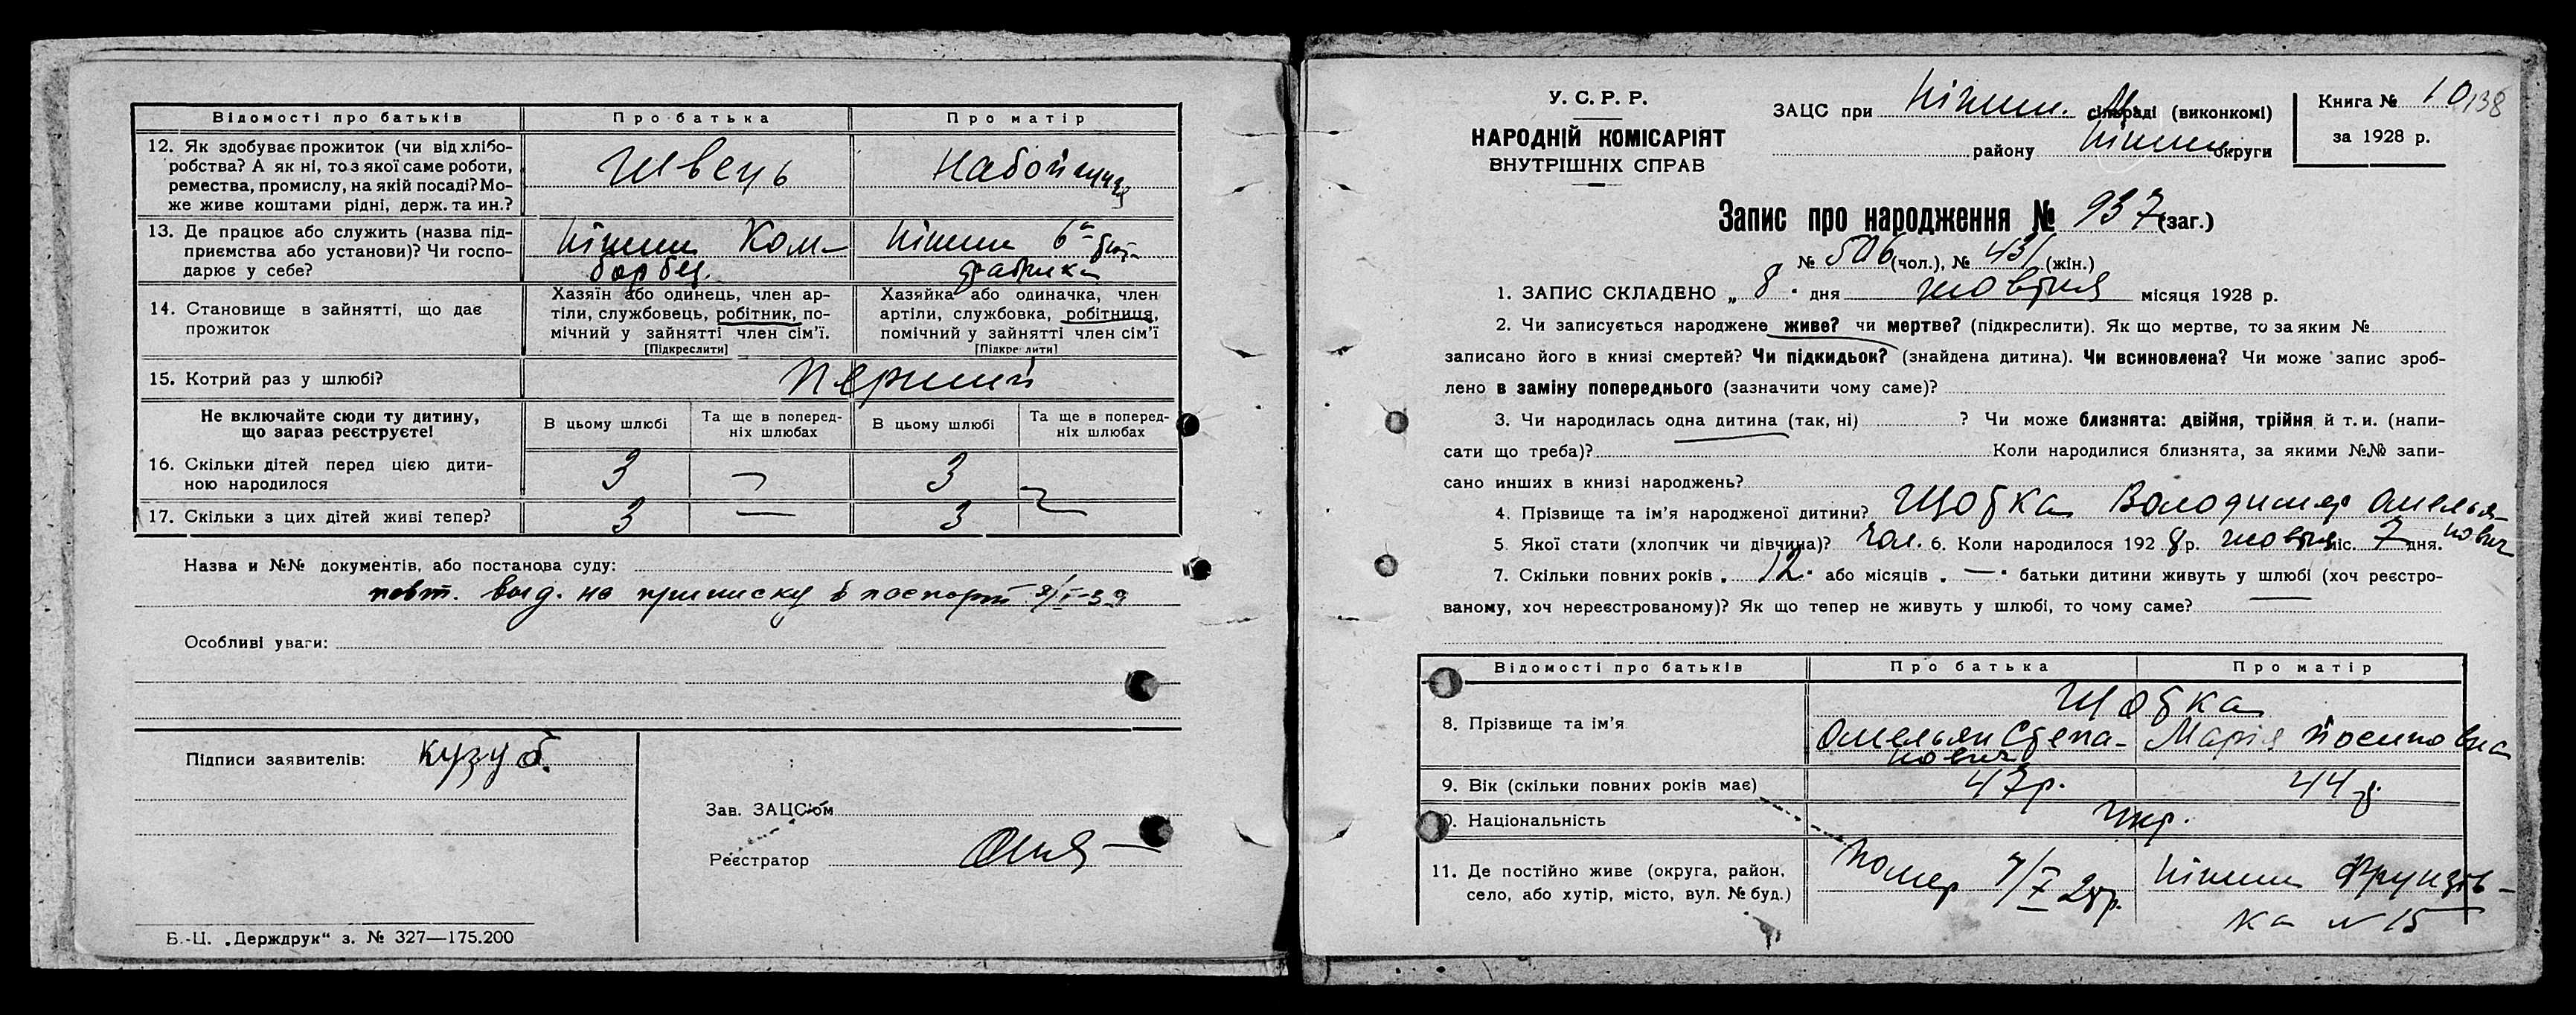 Відомості про батьків Про батька Про матір
12. Як здобуває прожиток (чи від хлібо-
робства? А як ні, то з якої саме роботи,
ремества, промислу, на якій посаді? Мо-
же живе коштами рідні, держ. та ин.?
Швець
13. Де працює або служить (назва під-
приємства або установи)? Чи госпо-
дарює у себе?
Ніжин Ком-
борбез.
Ніжин
фабрика
14. Становище в зайнятті, що дає
прожиток
Хазяїн або одинець, член ар-
тіли, службовець, робітник, по-
мічний у зайнятті член сім'ї.
[Підкреслити]
Хазяйка або одиначка, член
артіли, службовка, робітниця,
помічний у зайнятті член сім'ї
[Підкреслити]
15. Котрий раз у шлюбі? Перший
Не включайте сюди ту дитину,
що зараз реєструєте!
В цьому шлюбі
Та ще в поперед-
ніх шлюбах
В цьому шлюбі
Та ще в поперед-
ніх шлюбах
16. Скільки дітей перед цією дити-
ною народилося
3 — 3 —
17. Скільки з цих дітей живі тепер? 3 — 3 —
Назва и №№ документів, або постанова суду:
повт. выд. на приписку в паспорт
Особливі уваги:
Підписи заявителів: Кузуб.
Зав. ЗАЦС'ом
Реєстратор
Б.-Ц. „Держдрук“ з. № 327—175.200
У. С. Р. Р.
НАРОДНІЙ КОМІСАРІЯТ
ВНУТРІШНІХ СПРАВ
ЗАЦС при Ніжин. сільраді (виконкомі)
району Ніжин округи
Книга № 10 138
за 1928 р.
Запис про народження № 937 (заг.)
№ 506 (чол.), № 431 (жін.)
1. ЗАПИС СКЛАДЕНО „ 8 " дня жовтня місяця 1928 р.
2. Чи записується народжене живе? чи мертве? (підкреслити). Як що мертве, то за яким №
записано його в книзі смертей? Чи підкидьок? (знайдена дитина). Чи всиновлена? Чи може запис зроб-
лено в заміну попереднього (зазначити чому саме)?
3. Чи народилась одна дитина (так, ні) ? Чи може близнята: двійня, трійня й т. и. (напи-
сати що треба)? Коли народилися близнята, за якими №№ запи-
сано инших в книзі народжень?
4. Прізвище та ім'я народженої дитини? Щобка Володимир Омелья-
нович
5. Якої стати (хлопчик чи дівчина)? Чол. 6. Коли народилося 1928 р. жовтня міс. 7 дня.
7. Скільки повних років „ 12 " або місяців „ — " батьки дитини живуть у шлюбі (хоч реєстро-
ваному, хоч нереєстрованому)? Як що тепер не живуть у шлюбі, то чому саме?
Відомості про батьків Про батька Про матір
8. Прізвище та ім'я
Щобка
Омельян Степа-
нович
Марія Йосиповна
9. Вік (скільки повних років має) 47 р. 44 р.
10. Національність Укр.
11. Де постійно живе (округа, район,
село, або хутір, місто, вул. № буд.)
Помер
Ніжин Фрунзів-
ка № 15